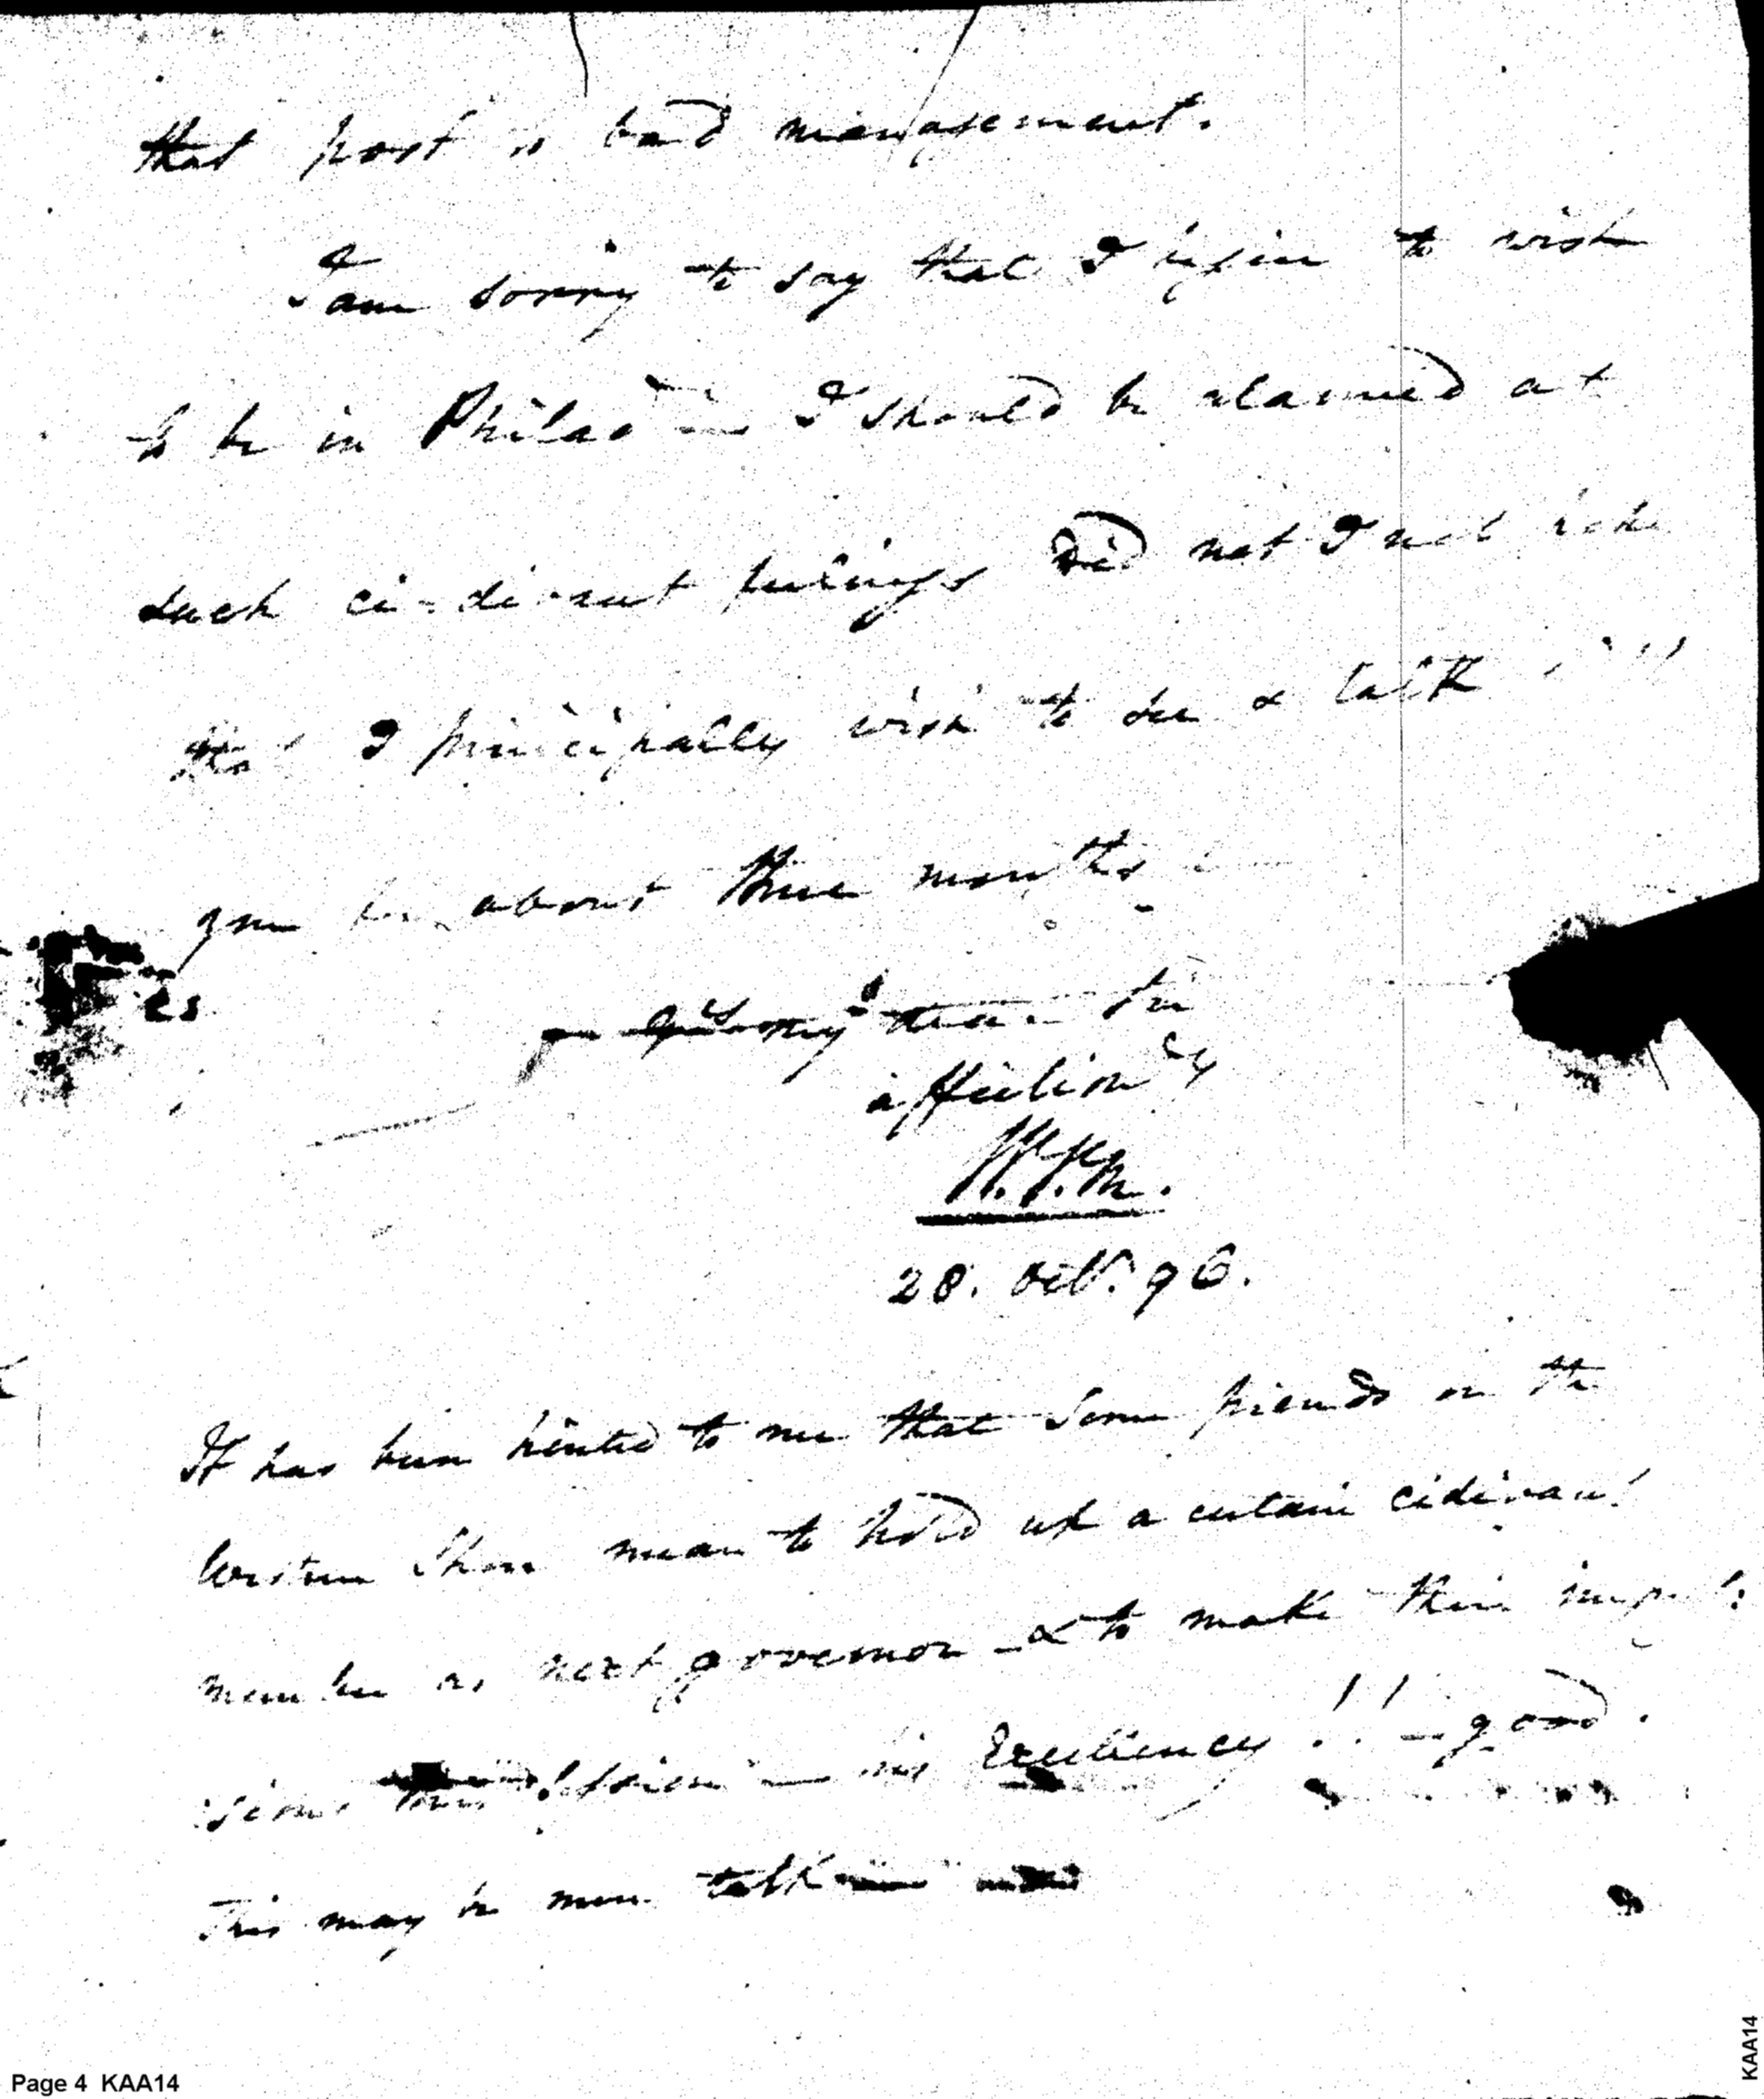 that post is bad management.
I am sorry to say that I begin to wish
to be in Philad I should be alarmed at
such ci-divant feelings did not I not
that I principally wish to see & talk
you be about three months
es
my dear Sir
affection ly
W. V. M.
28. Oct. 96.
It has been hinted to me that some friends on the
Western Shore mean to hold up a certain cidivant
member as next governor - & to make their
his Excellency !! - good.
This may be mere talk
Page 4 KAA14
KAA14